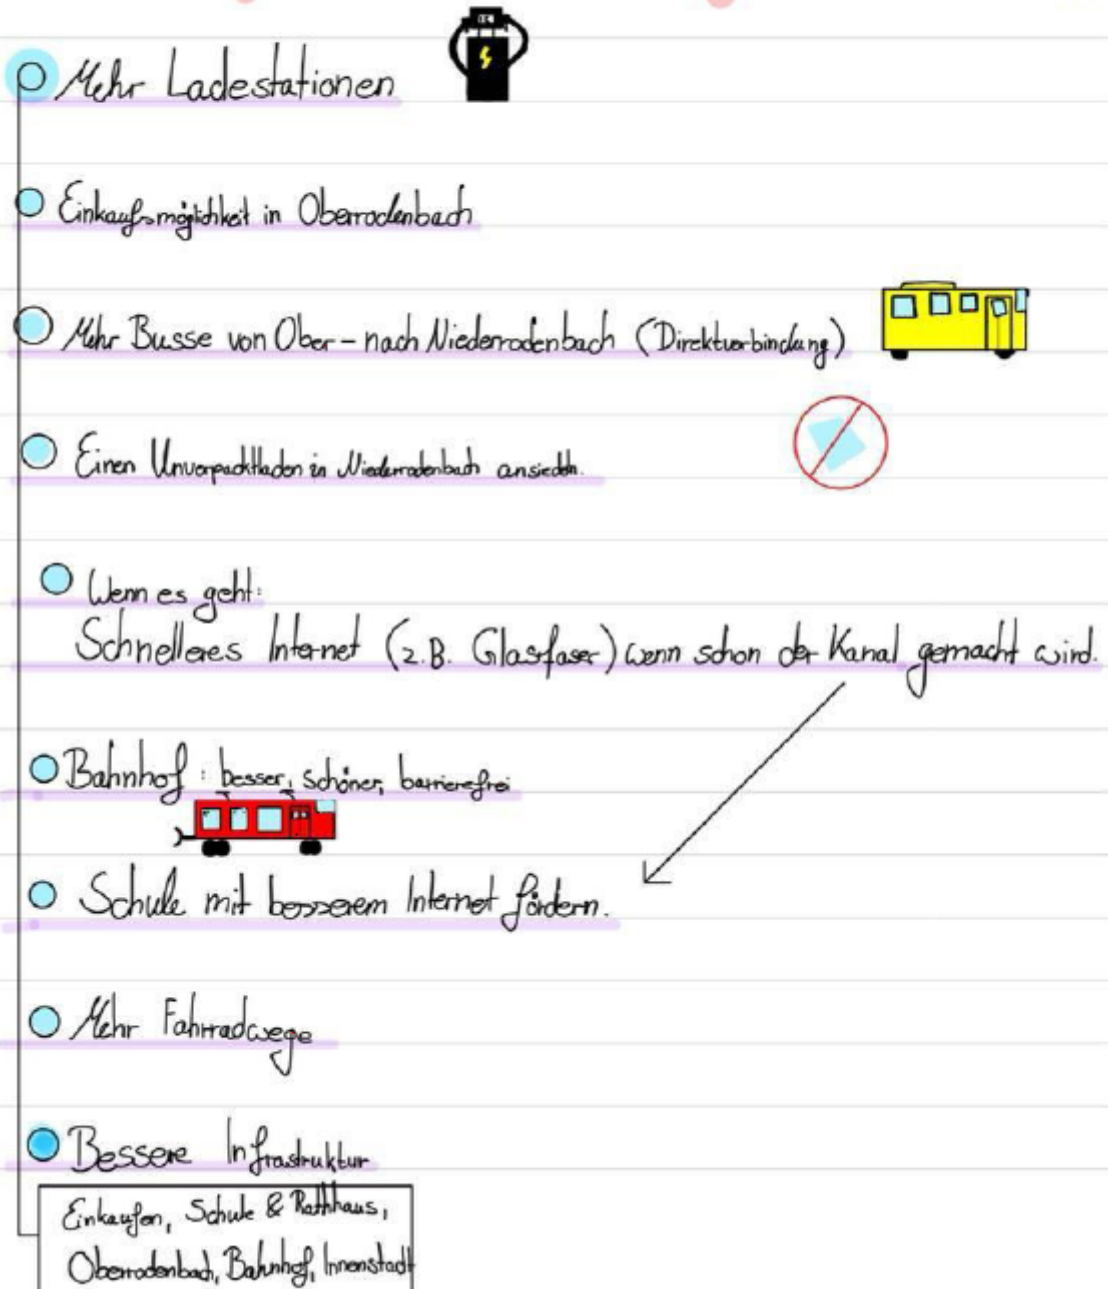 Mehr Ladestationen
Einkaufsmöglichkeit in Oberrodenbach
Mehr Busse von Ober-nach Niederrodenbach (Direktverbindung)
Einen Unverpacktladen in Niederrodenbach ansiedeln.
Wenn es geht:
Schnelleres Internet (z.B. Glasfaser) wenn schon der Kanal gemacht wird.
Bahnhof: besser, schöner, barrierefrei
Schule mit besserem Internet fördern.
Mehr Fahrradwege
Bessere Infrastruktur
Einkaufen, Schule & Rathhaus,
Oberrodenbach, Bahnhof, Innenstadt